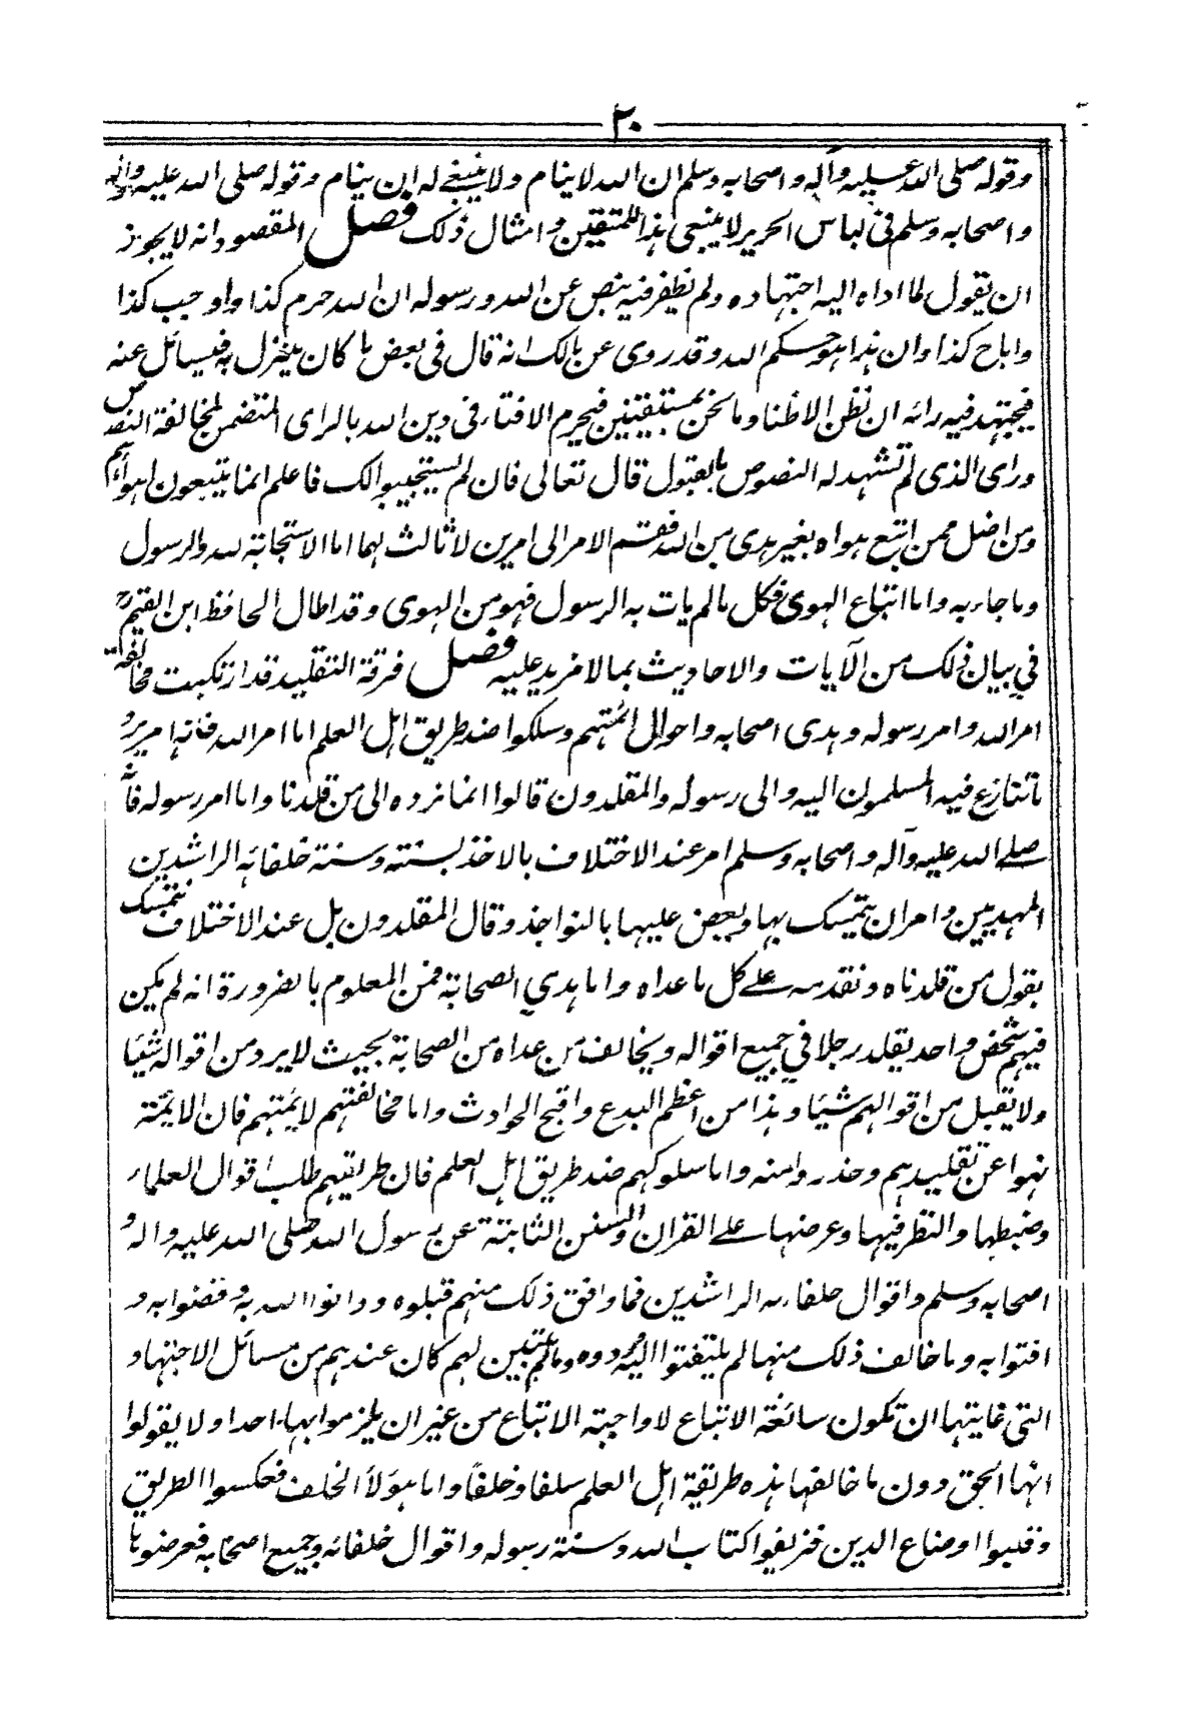 ٢٠
وقوله صلى الله عليه وآله واصحابه وسلم ان الله لا ينام ولا ينبغي له ان ينام وقوله صلى الله عليه وآله
واصحابه وسلم في لباس الحرير لا ينبغي هذا للمتقين وامثال ذلك فصل المقصود انه لا يجوز
ان يقول لما اداه اليه اجتهاده ولم يظفر فيه بنص عن الله ورسوله ان الله حرم كذا واوجب كذا
واباح كذا وان هذا هو حكم الله وقد روى عن مالك انه قال في بعض ما كان ينزل به فيسائل عنه
فيجتهد فيه رائه ان نظن الا ظنا وما نحن بمستيقنين فيحرم الافتاء في دين الله بالراى المتضمن لمخالفة النص
وراى الذى لم تشهد له النصوص بالقبول قال تعالى فان لم يستجيبوا لك فاعلم انما يتبعون اهوائهم
ومن اضل ممن اتبع هواه بغير هدى من الله فقسم الامر الى امرين لا ثالث لهما اما الاستجابة لله والرسول
وما جاء به واما اتباع الهوى فكل ما لم يات به الرسول فهو من الهوى وقد اطال الحافظ ابن القيم رح
في بيان ذلك من الآيات والاحاديث بما لا مزيد عليه فصل فرقة التقليد قد ارتكبت مخالفة
امر الله وامر رسوله وهدى اصحابه واحوال ائمتهم وسلكوا ضد طريق اهل العلم اما امر الله فانه امر برد
ما تنازع فيه المسلمون اليه والى رسوله والمقلدون قالوا انما نرده الى من قلدنا واما امر رسوله فانه
صلى الله عليه وآله واصحابه وسلم امر عند الاختلاف بالاخذ بسنته وسنة خلفائه الراشدين
المهديين وامر ان يتمسك بها ويعض عليها بالنواجذ وقال المقلدون بل عند الاختلاف نتمسك
بقول من قلدناه ونقدمه على كل ما عداه واما هدي الصحابة فمن المعلوم بالضرورة انه لم يكن
فيهم شخص واحد يقلد رجلا في جميع اقواله ويخالف من عداه من الصحابة بحيث لا يرد من اقواله شيئا
ولا يقبل من اقوالهم شيئا وهذا من اعظم البدع واقبح الحوادث واما مخالفتهم لايمتهم فان الايمّة
نهوا عن تقليدهم وحذروا منه واما سلوكهم ضد طريق اهل العلم فان طريقهم طلب اقوال العلماء
وضبطها والنظر فيها وعرضها على القران والسنن الثابتة عن رسول الله صلى الله عليه واله و
اصحابه وسلم واقوال خلفاءه الراشدين فما وافق ذلك منهم قبلوه ودانوا الله به وقضوا به و
افتوا به وما خالف ذلك منها لم يلتفتوا اليه وردوه وما لم يتبين لهم كان عندهم من مسائل الاجتهاد
التى غايتها ان تكون سائغة الاتباع لا واجبة الاتباع من غير ان يلزموا بها احدا ولا يقولوا
انها الحق دون ما خالفها هذه طريقة اهل العلم سلفا وخلفا واما هؤلاء الخلف فعكسوا الطريق
وقلبوا اوضاع الدين فزيفوا كتاب الله وسنة رسوله واقوال خلفائه وجميع اصحابه فعرضوها